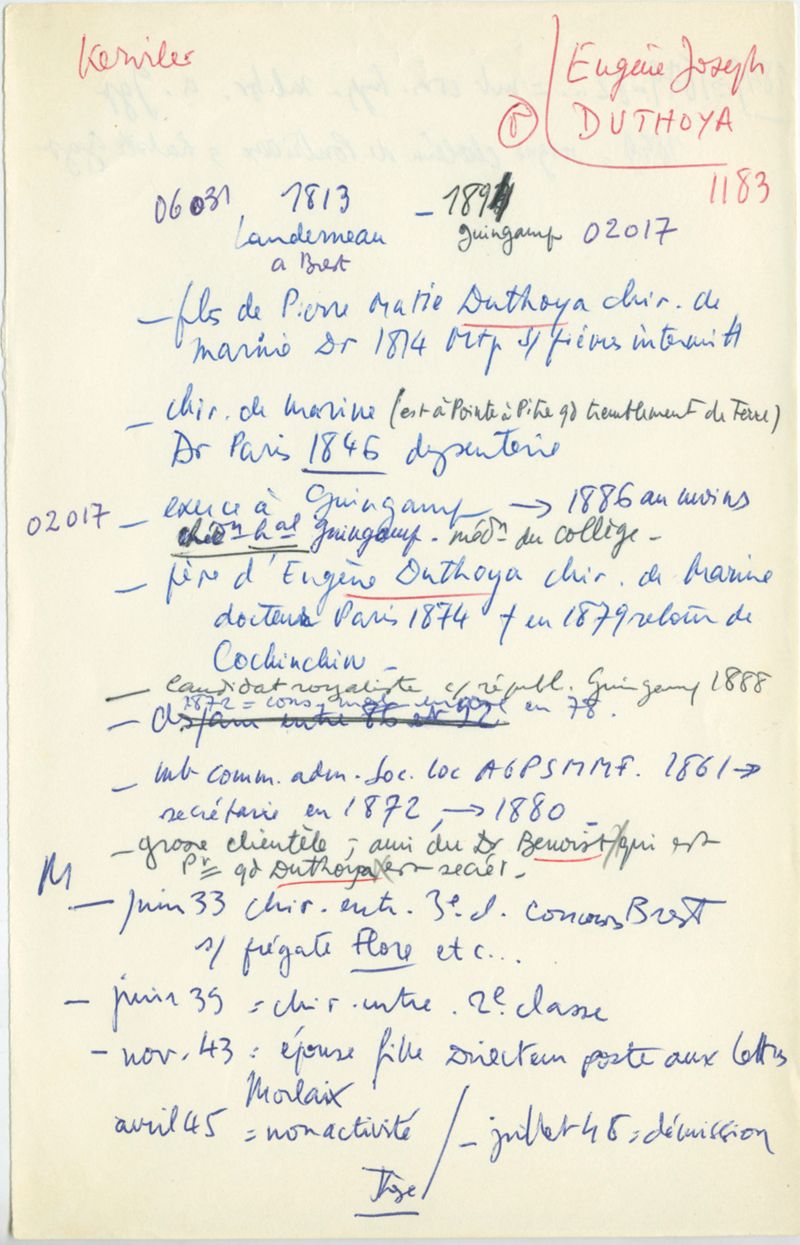 Kerviler
Eugène Joseph
DUTHOYA
1183
06031 1813 – 1894
Landerneau Guingamp 02017
a Brest
– fils de Pierre Marie Duthoya chir. de
marine Dr 1814 Mtp s/ fièvres intermitt
– chir. de marine (est à Pointe à Pitre qd tremblement de Terre)
Dr Paris 1846 dysenterie
02017 – exerce à Guingamp → 1886 au moins
hal Guingamp – médn du collège –
– père d'Eugène Duthoya chir. de Marine
docteur Paris 1874 † en 1879 retour de
Cochinchine –
– candidat royaliste c/ républ. Guingamp 1888
– 1872 = cons. en 78.
– mb comm. adm. Soc. loc AGPSMMF. 1861 →
secrétaire en 1872, → 1880 –
– grosse clientèle ; ami du Dr Benoist qui est
Pr qd Duthoya est secrét –
M
– juin 33 chir. entr. 3e cl. concours Brest
s/ frégate Flore etc...
– juin 39 = chir. entre. 2e classe
– nov. 43 = épouse fille Directeur poste aux lettres
Morlaix
avril 45 = non activité / – juillet 46 = démission
Thèse